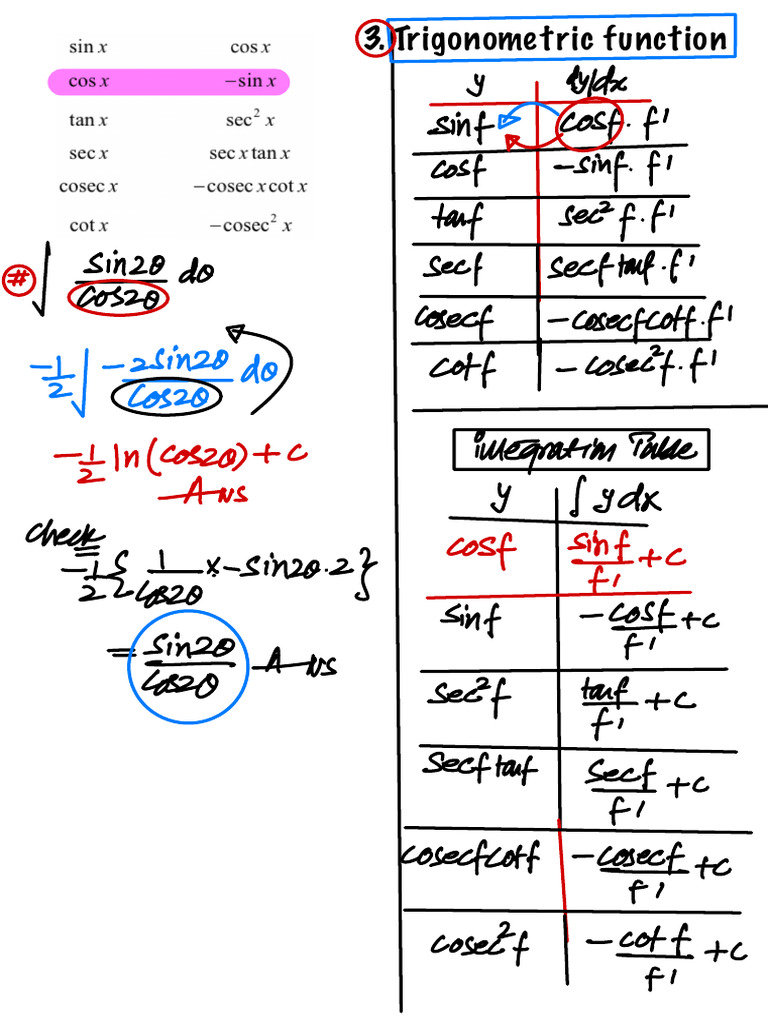 sin x cos x
cos x −sin x
tan x sec² x
sec x sec x tan x
cosec x −cosec x cot x
cot x −cosec² x
# ∫ sin2θ/cos2θ dθ
-1/2 ∫ -2sin2θ/cos2θ dθ
-1/2 ln(cos2θ) + c
Ans
check
-1/2 { 1/cos2θ × -sin2θ·2 }
= sin2θ/cos2θ Ans
3. Trigonometric function
y dy/dx
sinf cosf · f'
cosf -sinf · f'
tanf sec² f · f'
secf secf tanf · f'
cosecf -cosecf cotf · f'
cotf -cosec²f · f'
Integration Table
y ∫ y dx
cosf sinf/f' + c
sinf -cosf/f' + c
sec²f tanf/f' + c
secf tanf secf/f' + c
cosecf cotf -cosecf/f' + c
cosec²f -cotf/f' + c